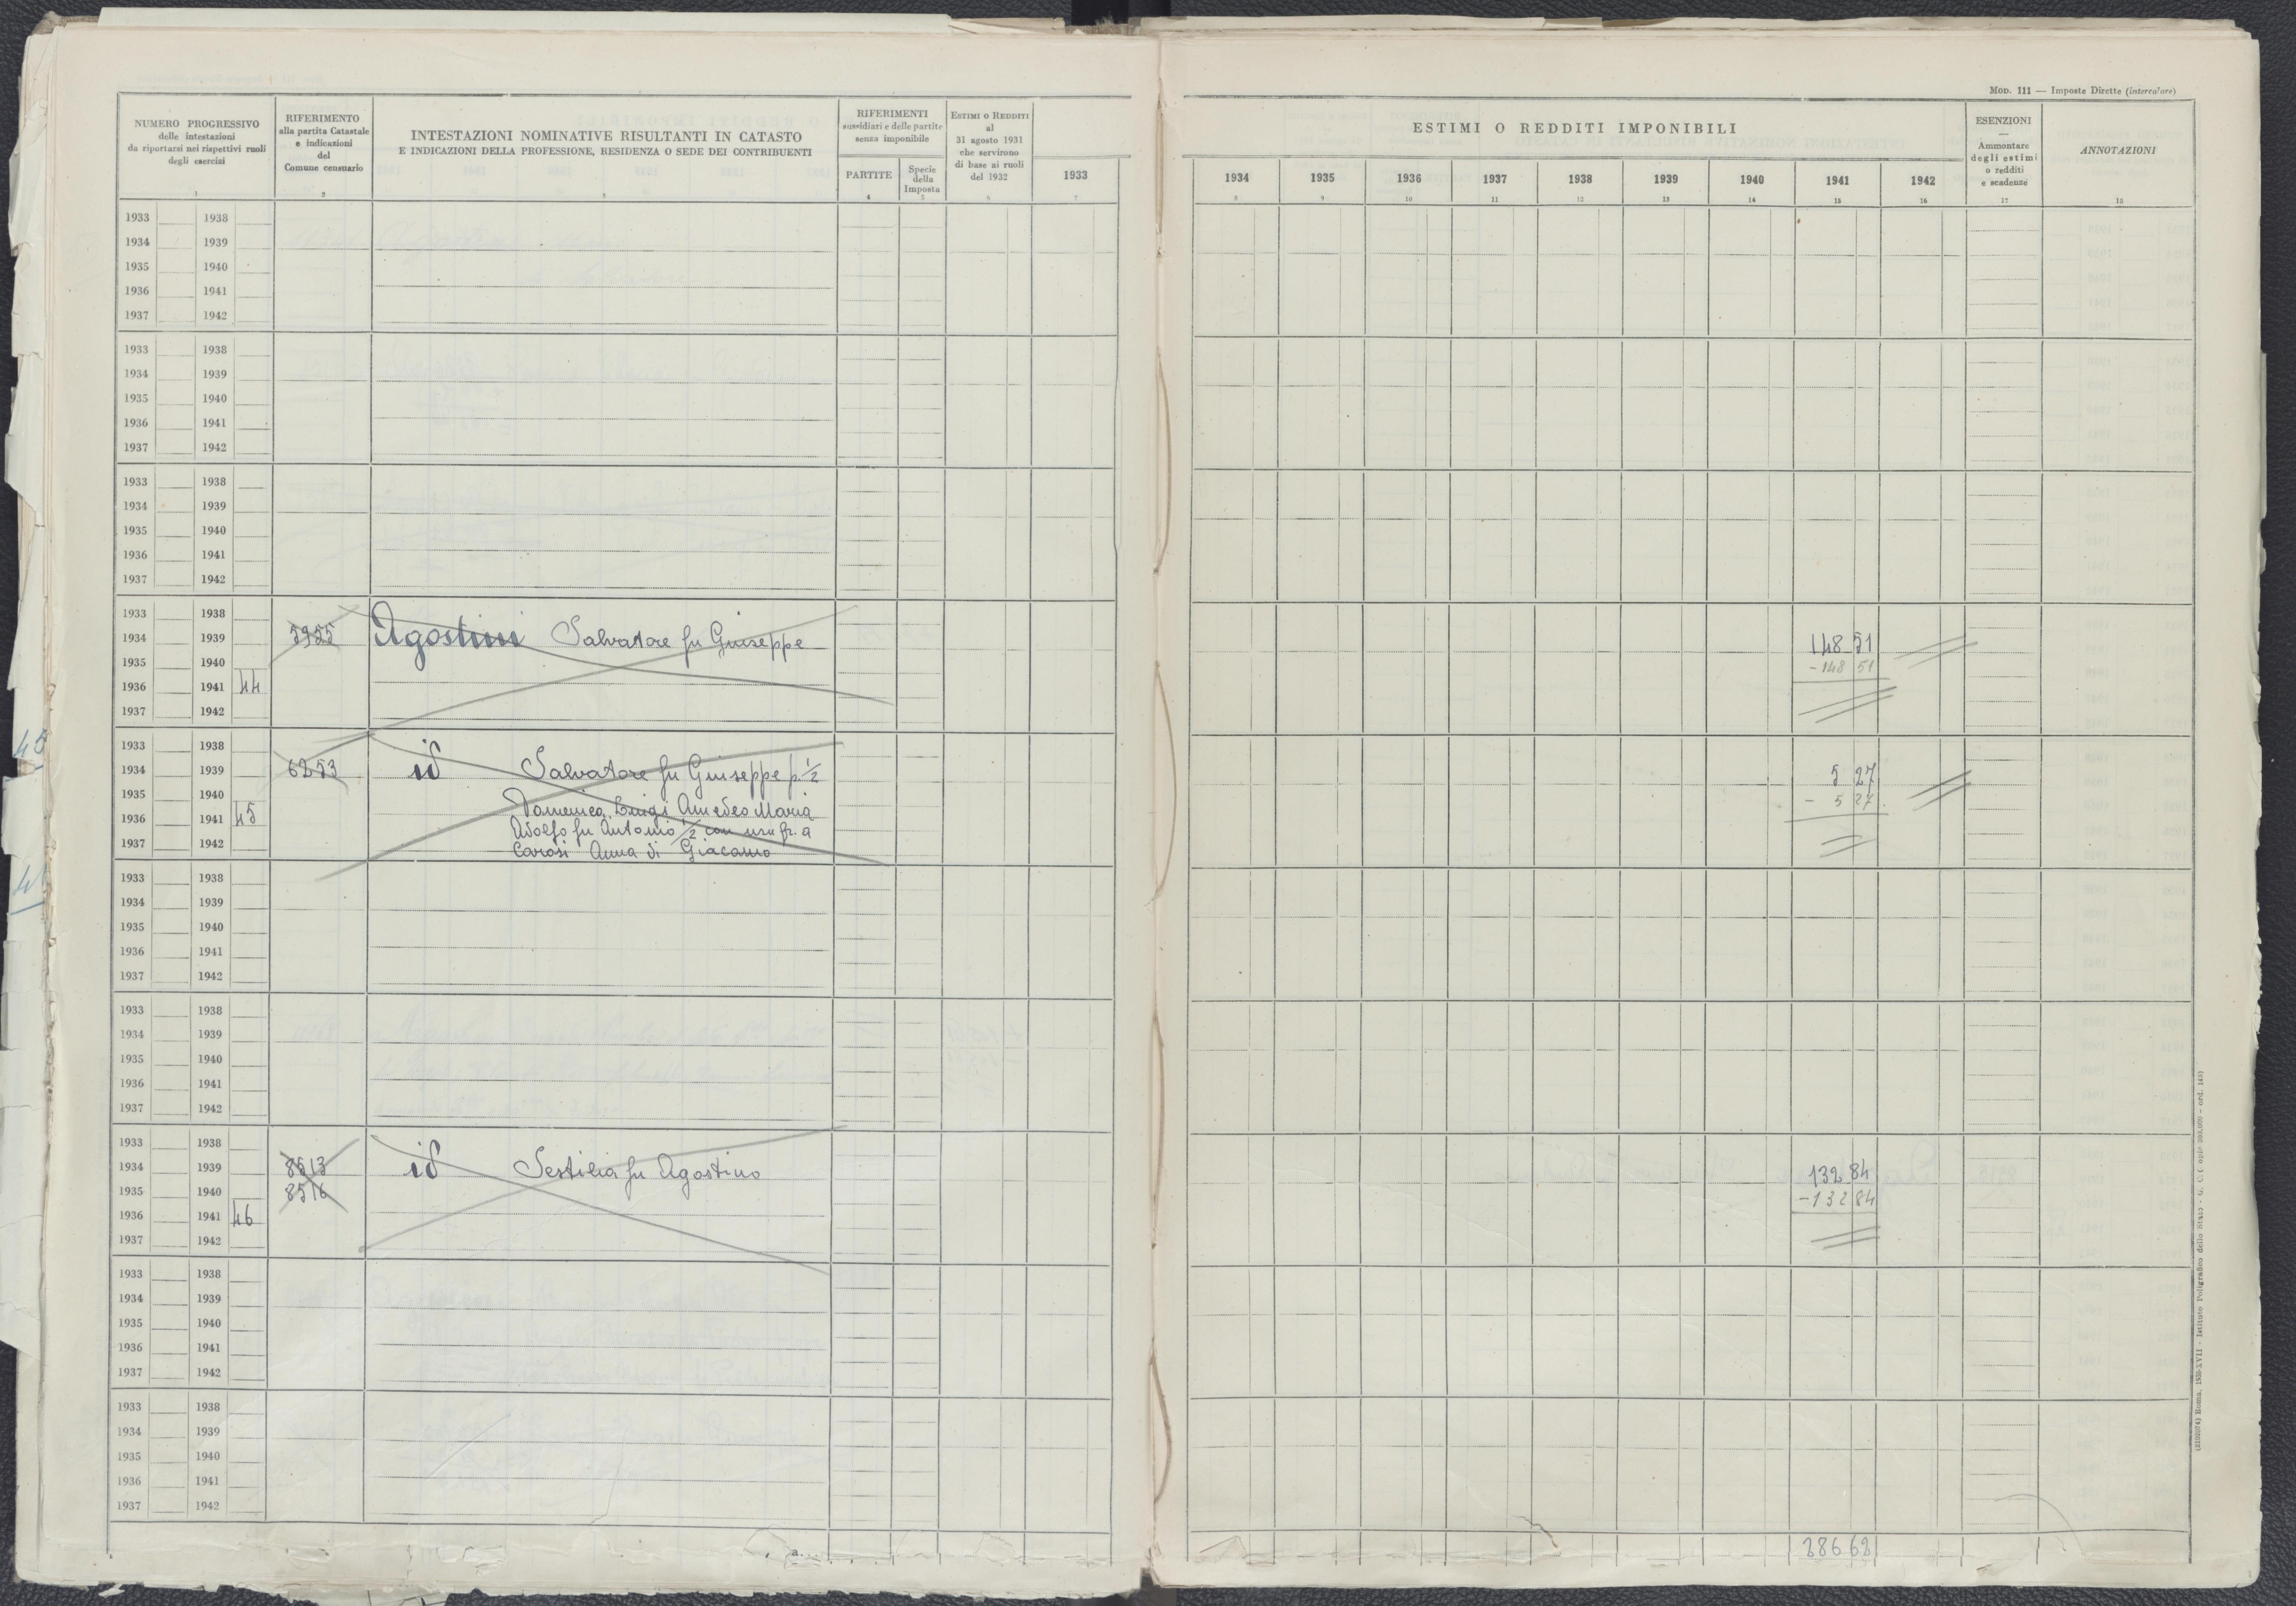 MOD. 111 — Imposte Dirette (intercalare)
NUMERO PROGRESSIVO
delle intestazioni
da riportarsi nei rispettivi ruoli
degli esercizi
1
RIFERIMENTO
alla partita Catastale
e indicazioni
del
Comune censuario
2
INTESTAZIONI NOMINATIVE RISULTANTI IN CATASTO
E INDICAZIONI DELLA PROFESSIONE, RESIDENZA O SEDE DEI CONTRIBUENTI
3
RIFERIMENTI
sussidiari e delle partite
senza imponibile
PARTITE
4
Specie
della
Imposta
5
ESTIMI O REDDITI
al
31 agosto 1931
che servirono
di base ai ruoli
del 1932
6
1933
7
ESTIMI O REDDITI IMPONIBILI
1934 1935 1936 1937 1938 1939 1940 1941 1942
8 9 10 11 12 13 14 15 16
ESENZIONI
—
Ammontare
degli estimi
o redditi
e scadenze
17
ANNOTAZIONI
18
1933 1938
1934 1939
1935 1940
1936 1941
1937 1942
1933 1938
1934 1939
1935 1940
1936 1941
1937 1942
1933 1938
1934 1939
1935 1940
1936 1941
1937 1942
1933 1938
1934 1939 5955 Agostini Salvatore fu Giuseppe 148 51
1935 1940 - 148 51
1936 1941 44
1937 1942
1933 1938
1934 1939 6253 id Salvatore fu Giuseppe p. 1/2 5 27
1935 1940 - 5 27
Domenica, Luigi Amedeo Maria
1936 1941 45
Adolfo fu Antonio 1/2 con usufr. a
1937 1942
Carosi Anna di Giacomo
1933 1938
1934 1939
1935 1940
1936 1941
1937 1942
1933 1938
1934 1939
1935 1940
1936 1941
1937 1942
1933 1938
1934 1939 8513 id Sestilia fu Agostino 132 84
1935 1940 8516 - 132 84
1936 1941 46
1937 1942
1933 1938
1934 1939
1935 1940
1936 1941
1937 1942
1933 1938
1934 1939
1935 1940
1936 1941
1937 1942
286 62